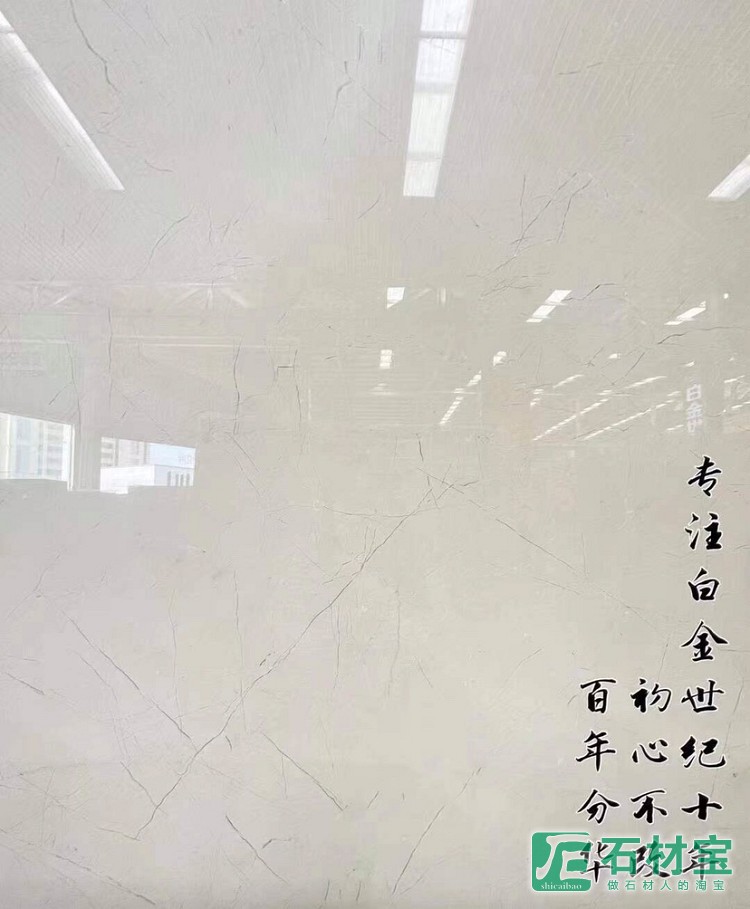 专注白金世纪十年
初心不改
百年分华
白金世
石材宝
shicaibao
做石材人的淘宝